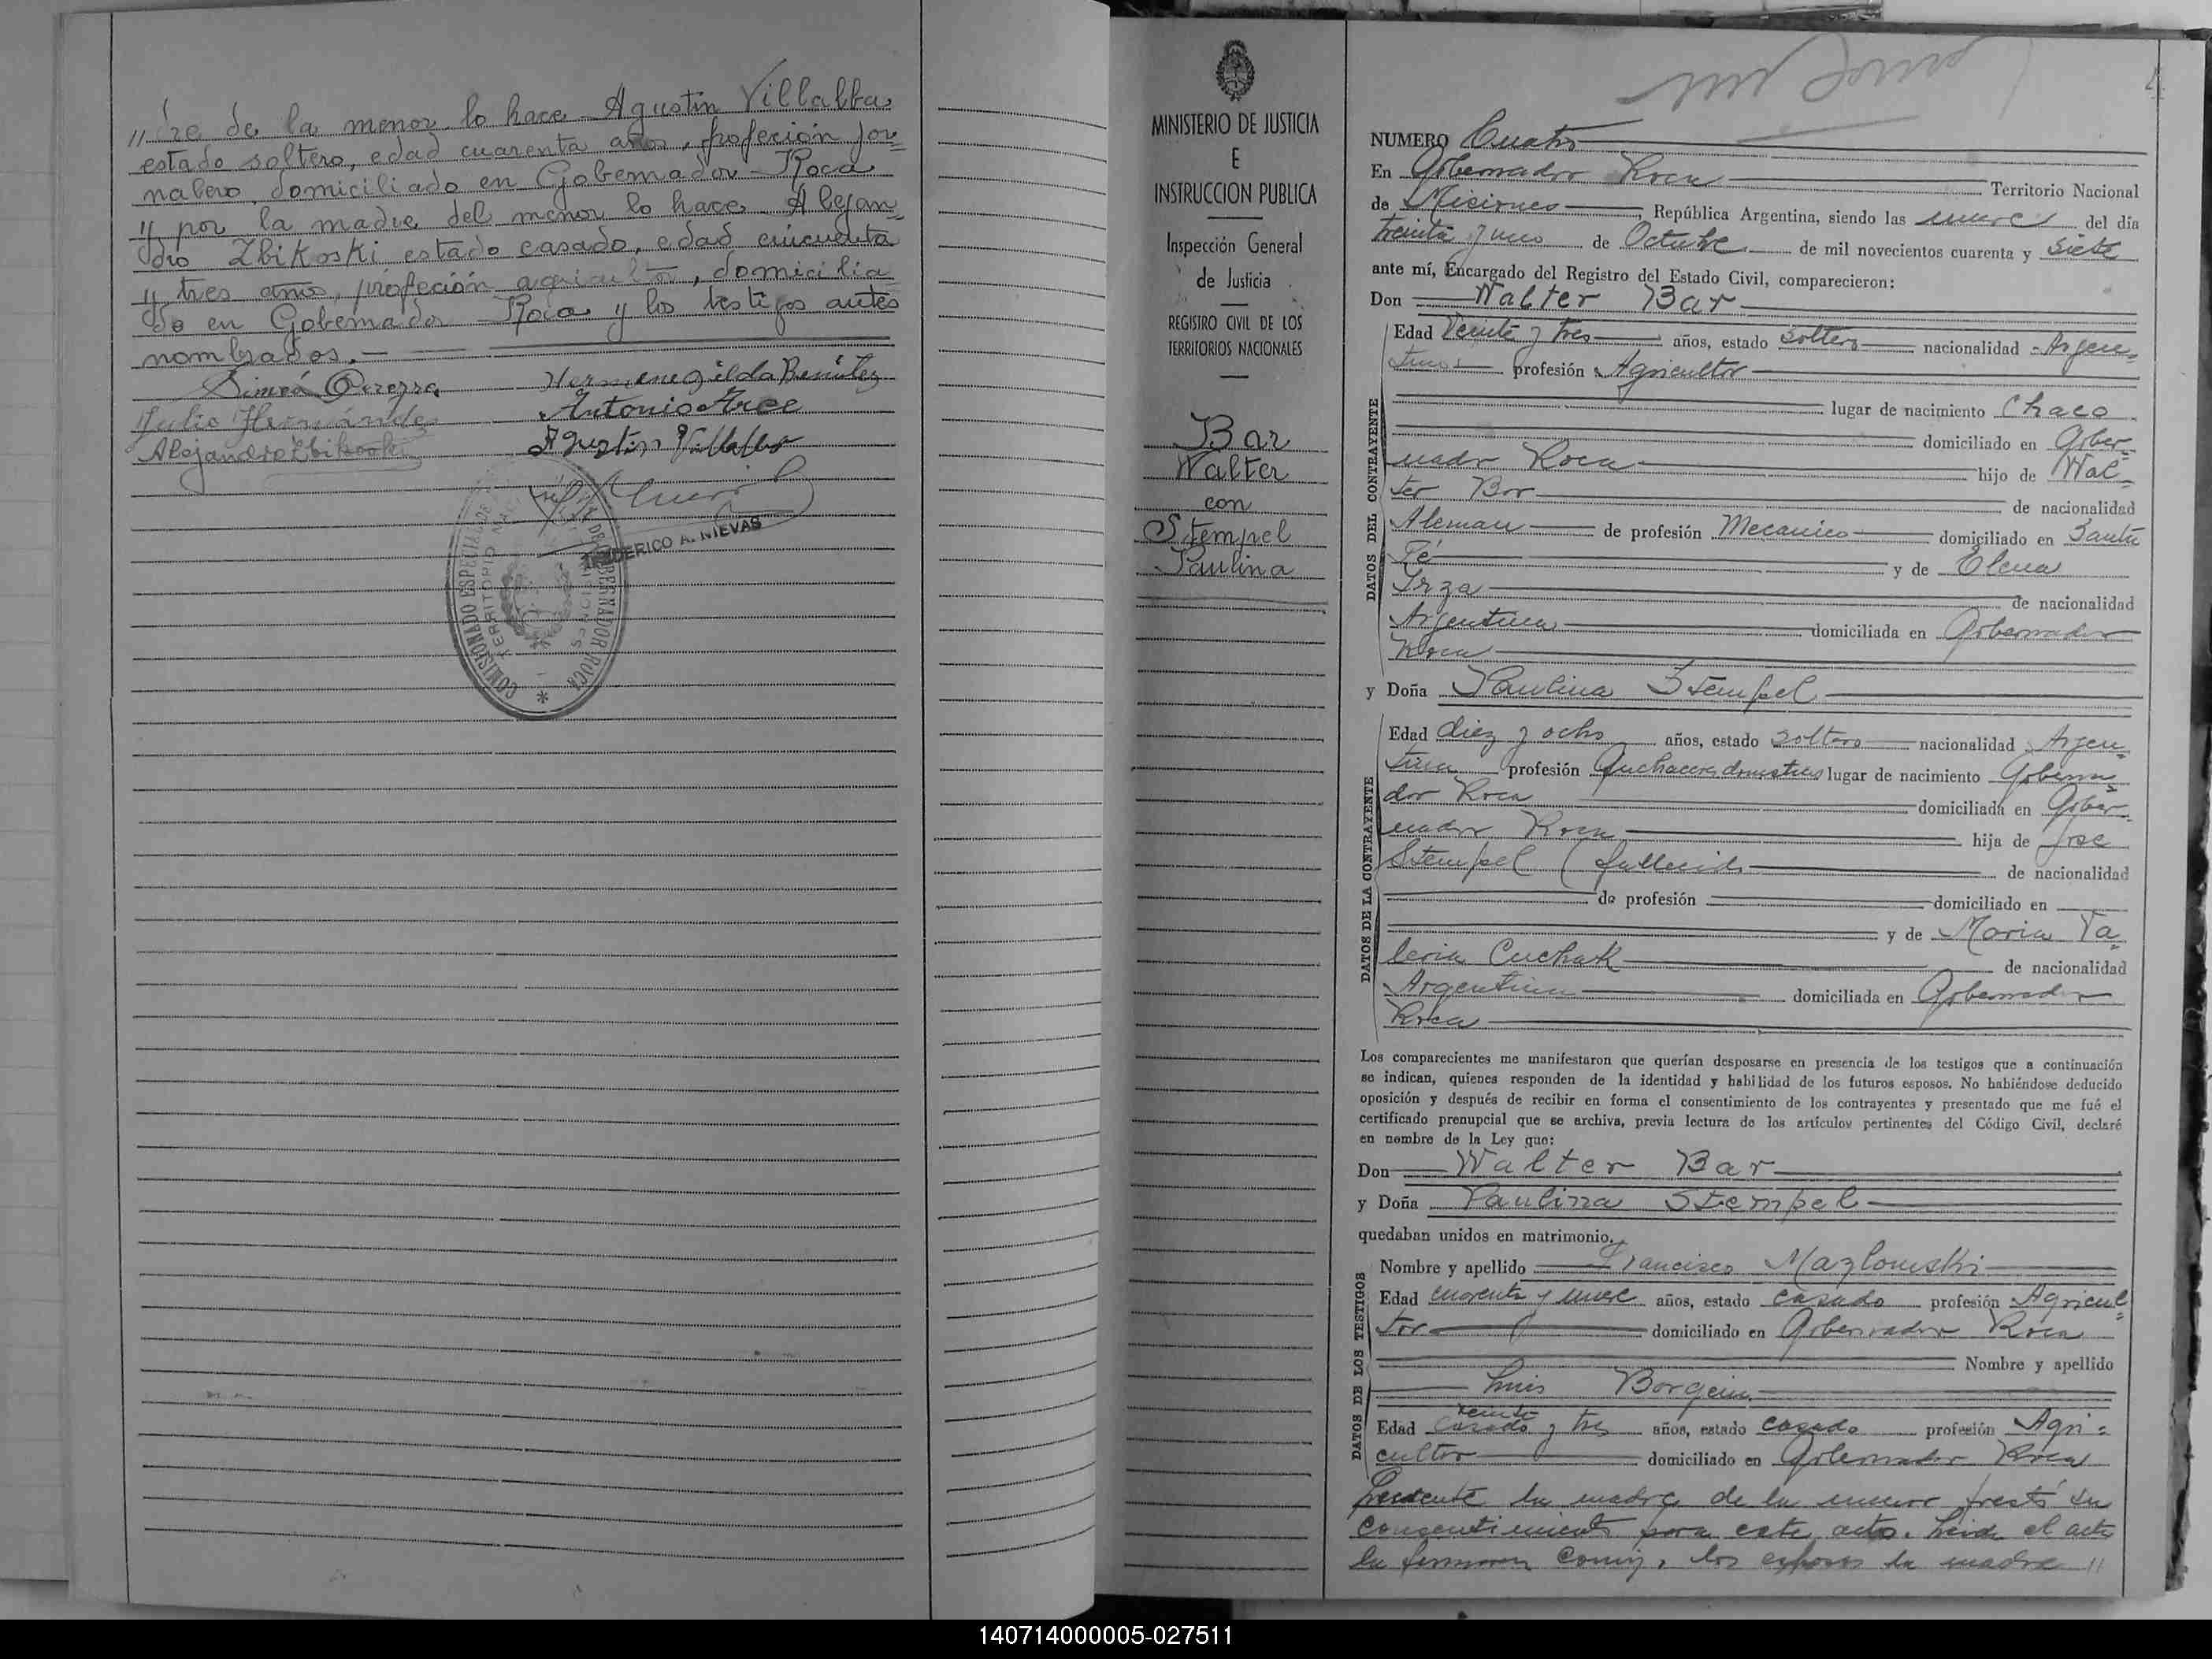 "dre de la menor lo hace Agustin Villalba,
estado soltero, edad cuarenta años, profeción jor=
nalero, domiciliado en Gobernador Roca
y por la madre del menor lo hace Alejan=
dro Zbikoski estado casado, edad cincuenta
y tres años, profeción agricultor, domicilia
do en Gobernador Roca y los testigos antes
nombrados.—
Hermenegilda Benitez
Julio Hernández Antonio Arce
Alejandro Zbikoski Agustin Villalba
FEDERICO A. NIEVAS
COMISIONADO ESPECIAL DE GOBERNADOR ROCA
TERRITORIO NAC. MISIONES
MINISTERIO DE JUSTICIA
E
INSTRUCCION PUBLICA
Inspección General
de Justicia
REGISTRO CIVIL DE LOS
TERRITORIOS NACIONALES
Bar
Walter
con
Stempel
Paulina
NUMERO Cuatro
En Gobernador Roca Territorio Nacional
de Misiones, República Argentina, siendo las nueve del día
treinta y uno de Octubre de mil novecientos cuarenta y siete
ante mí, Encargado del Registro del Estado Civil, comparecieron:
Don Walter Bar
DATOS DEL CONTRAYENTE
Edad Veinte y tres años, estado soltero nacionalidad Argen=
tino profesión Agricultor
lugar de nacimiento Chaco
domiciliado en Gober=
nador Roca hijo de Wal=
ter Bar de nacionalidad
Aleman de profesión Mecanico domiciliado en Santa
Fé y de Elena
Irza de nacionalidad
Argentina domiciliada en Gobernador
Roca
y Doña Paulina Stempel
DATOS DE LA CONTRAYENTE
Edad diez y ocho años, estado soltera nacionalidad Argen=
tina profesión Quehaceres domesticos lugar de nacimiento Goberna=
dor Roca domiciliada en Gober=
nador Roca hija de Jose
Stempel (fallecido de nacionalidad
de profesión domiciliado en
y de Maria Va=
leria Cuchak de nacionalidad
Argentina domiciliada en Gobernador
Roca
Los comparecientes me manifestaron que querían desposarse en presencia de los testigos que a continuación
se indican, quienes responden de la identidad y habilidad de los futuros esposos. No habiéndose deducido
oposición y después de recibir en forma el consentimiento de los contrayentes y presentado que me fué el
certificado prenupcial que se archiva, previa lectura de los artículos pertinentes del Código Civil, declaré
en nombre de la Ley que:
Don Walter Bar
y Doña Paulina Stempel
quedaban unidos en matrimonio.
DATOS DE LOS TESTIGOS
Nombre y apellido Francisco Mazlowski
Edad cuarenta y nueve años, estado casado profesión Agricul=
tor domiciliado en Gobernador Roca
Nombre y apellido
Luis Borgein
veinte
Edad casado y tres años, estado casado profesión Agri=
cultor domiciliado en Gobernador Roca
Presente la madre de la menor prestó su
consentimiento para este acto. Leida el acta
la firmaron conmigo, los esposos la madre "
140714000005-027511